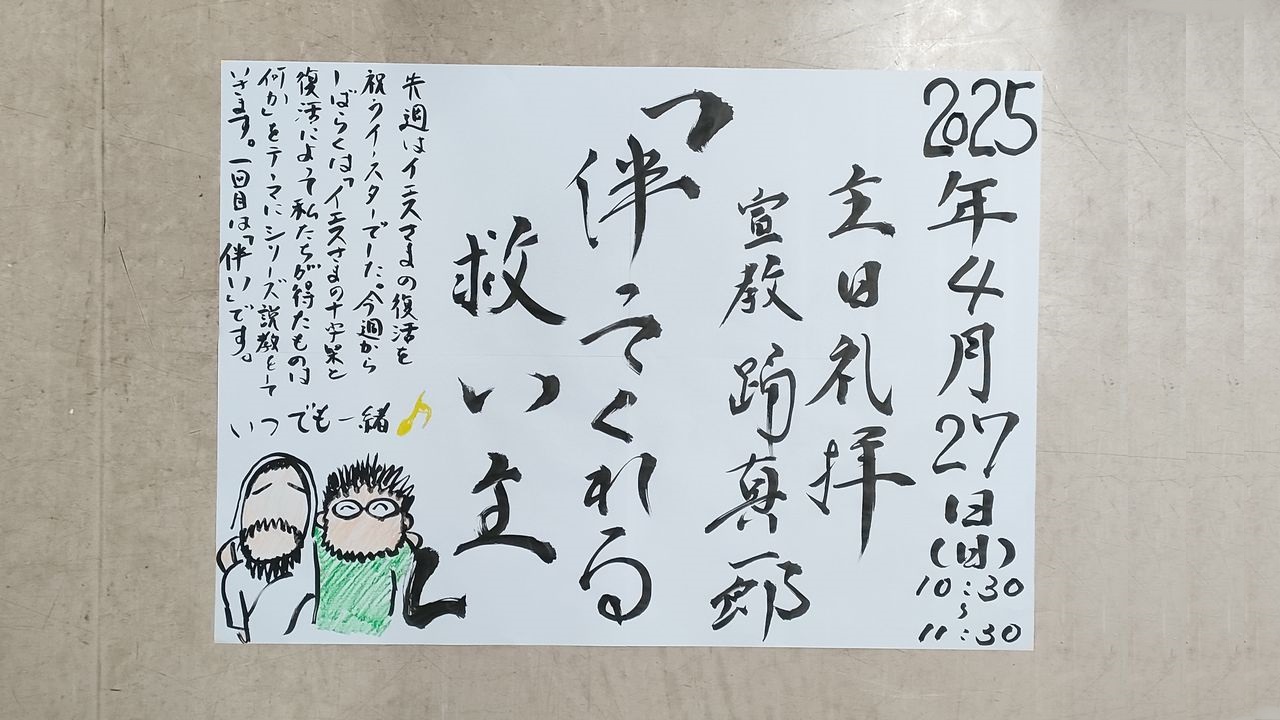 2025年4月27日(日)
10:30
〜
11:30
主日礼拝
宣教 踊真一郎
「伴ってくれる
救い主」
先週はイエスさまの復活を
祝うイースターでした。今週から
しばらくは「イエスさまの十字架と
復活によって私たちが得たものは
何か」をテーマにシリーズ説教をして
いきます。一回目は「伴い」です。
いつでも一緒♪